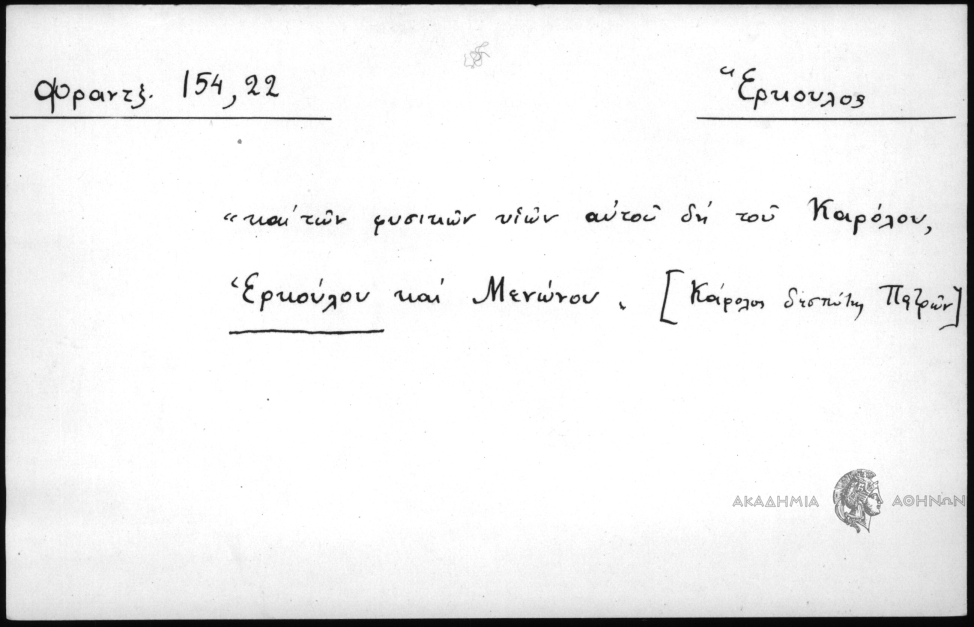 Φραντζ. 154,22
Ἕρκουλος
“καὶ τῶν φυσικῶν υἱῶν αὐτοῦ δὴ τοῦ Καρόλου,
Ἑρκούλου καὶ Μενώνου. [Κάρολος δεσπότης Πατρῶν]
ΑΚΑΔΗΜΙΑ ΑΘΗΝΩΝ